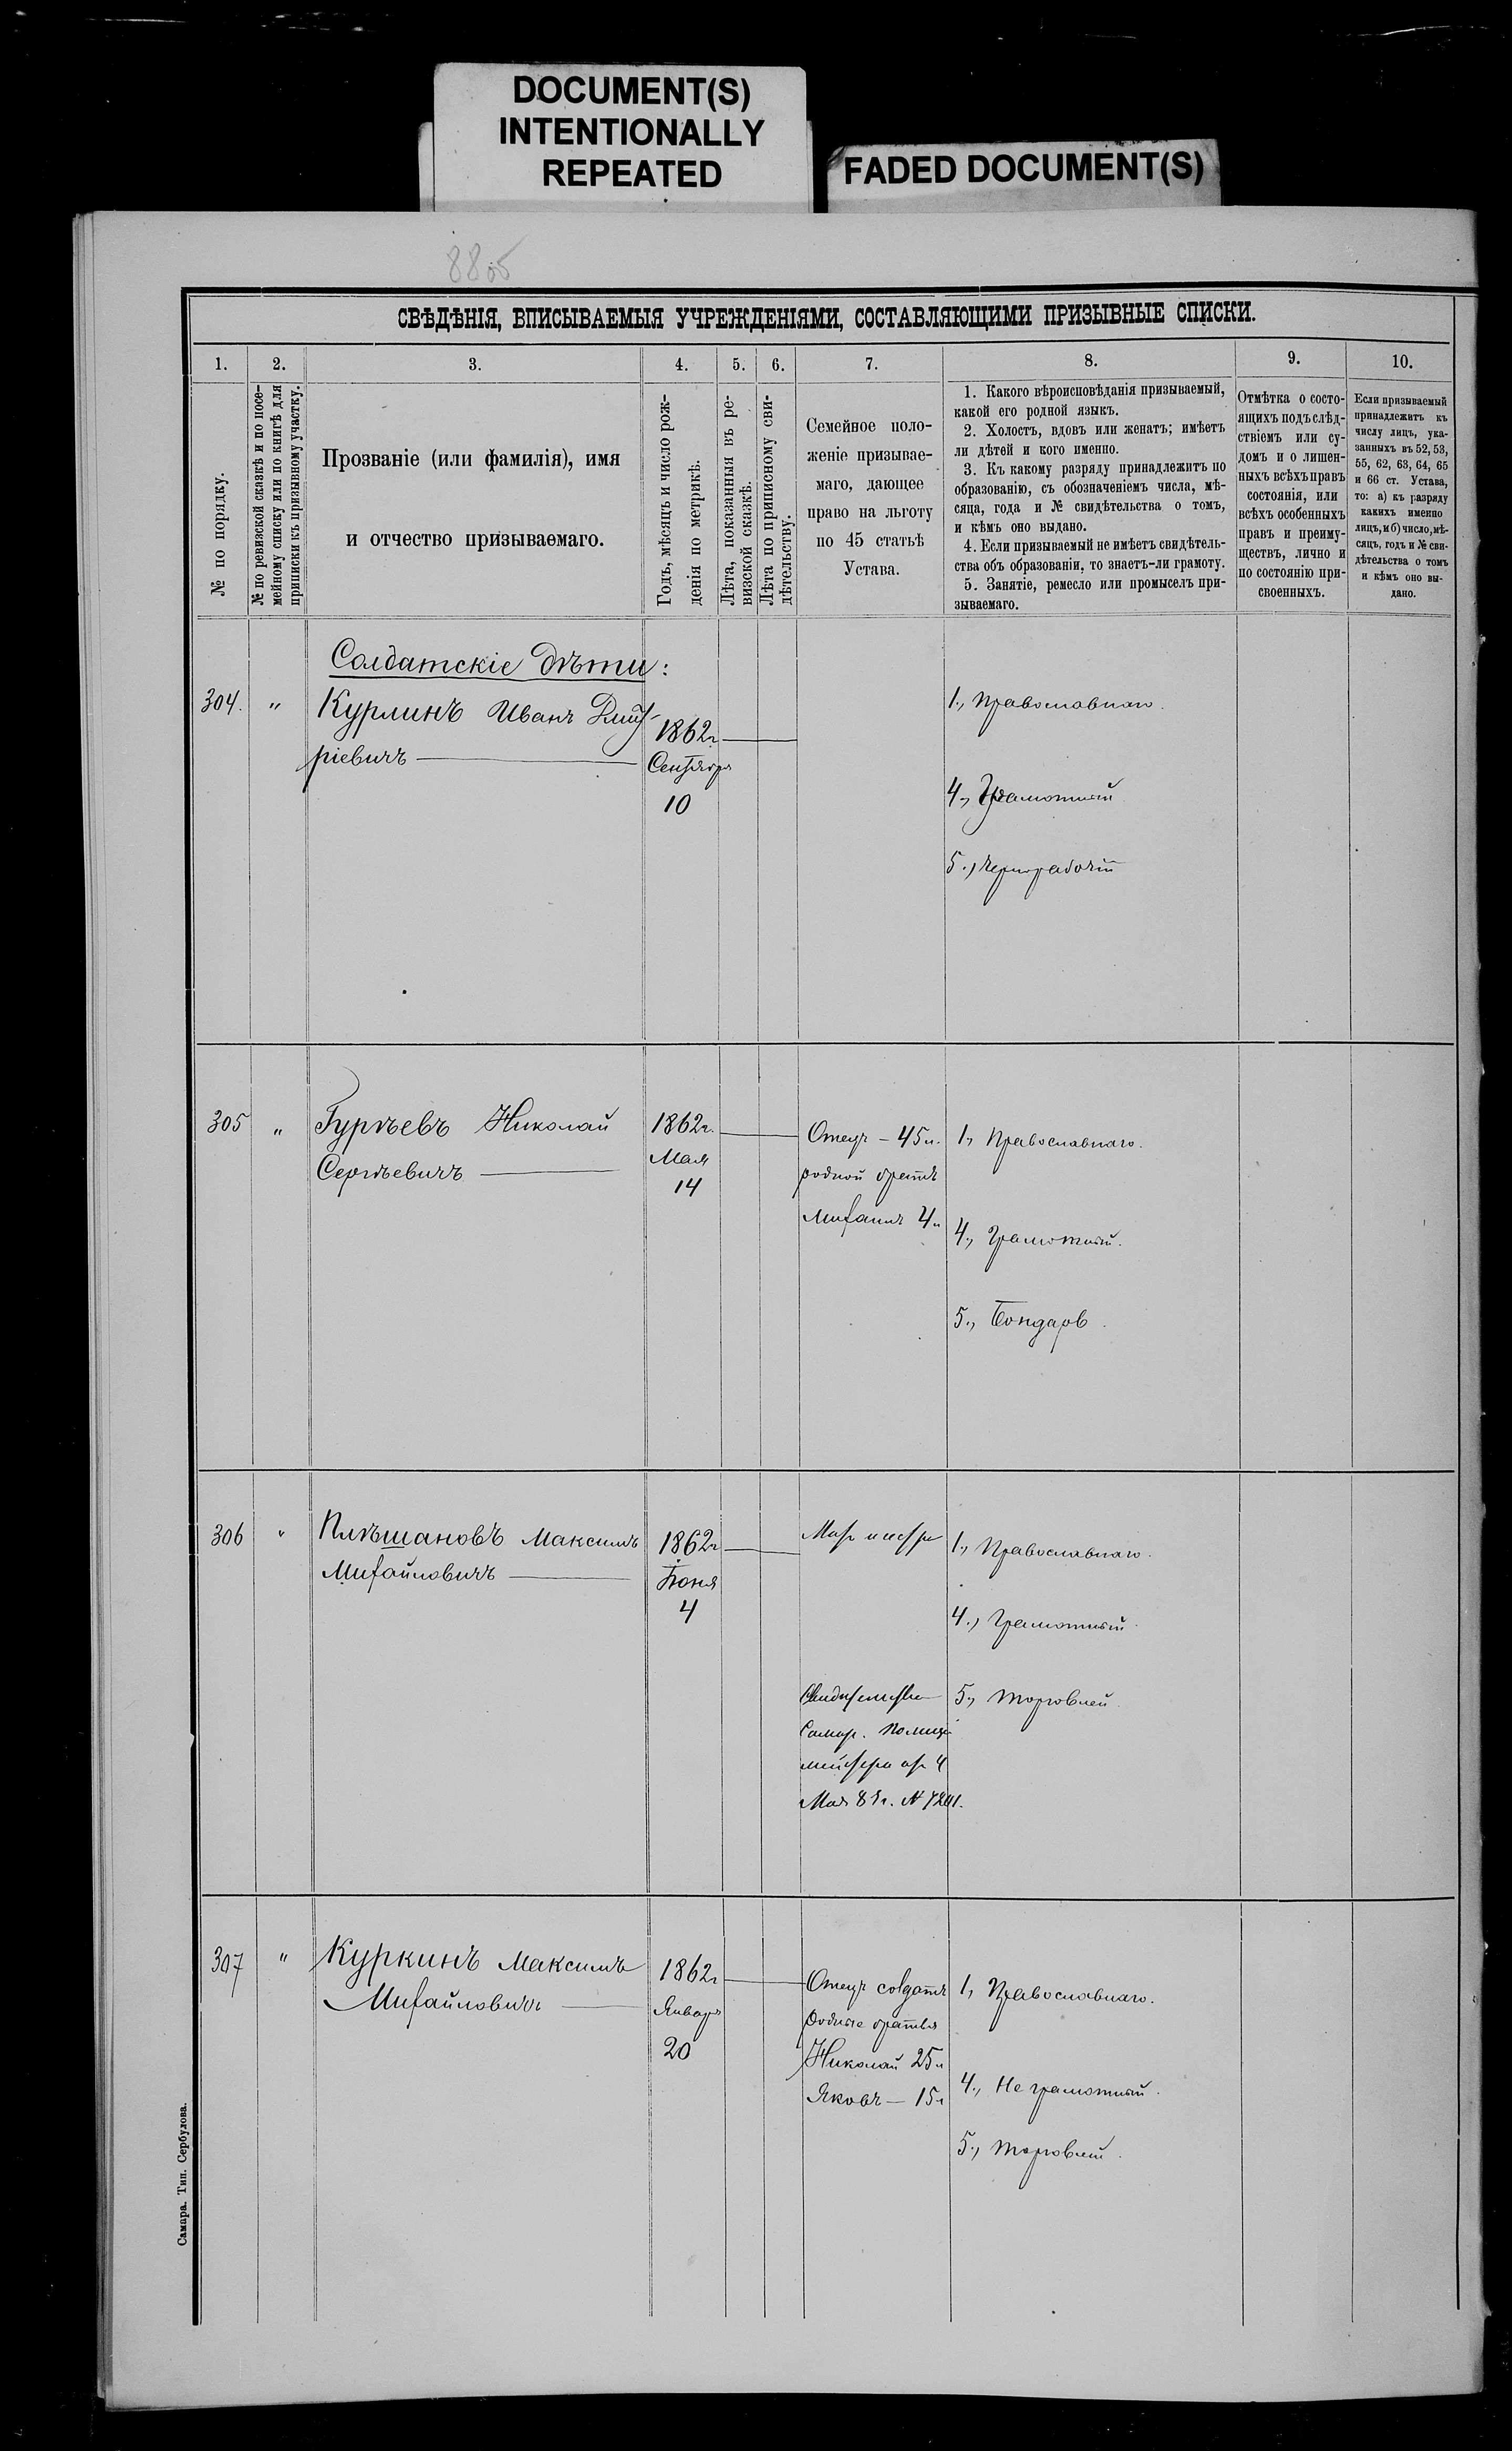 DOCUMENT(S)
INTENTIONALLY
REPEATED
FADED DOCUMENT(S)
СВѢДѢНІЯ, ВПИСЫВАЕМЫЯ УЧРЕЖДЕНІЯМИ, СОСТАВЛЯЮЩИМИ ПРИЗЫВНЫЕ СПИСКИ.
1. 2. 3. 4. 5. 6. 7. 8. 9. 10.
№ по порядку.
№ по ревизской сказкѣ и по посе-
мейному списку или по книгѣ для
приписки къ призывному участку.
Прозваніе (или фамилія), имя
и отчество призываемаго.
Годъ, мѣсяцъ и число рож-
денія по метрикѣ.
Лѣта, показанныя въ ре-
визской сказкѣ.
Лѣта по приписному сви-
дѣтельству.
Семейное поло-
женіе призывае-
маго, дающее
право на льготу
по 45 статьѣ
Устава.
1. Какого вѣроисповѣданія призываемый,
какой его родной языкъ.
2. Холостъ, вдовъ или женатъ; имѣетъ
ли дѣтей и кого именно.
3. Къ какому разряду принадлежитъ по
образованію, съ обозначеніемъ числа, мѣ-
сяца, года и № свидѣтельства о томъ,
и кѣмъ оно выдано.
4. Если призываемый не имѣетъ свидѣтель-
ства объ образованіи, то знаетъ-ли грамоту.
5. Занятіе, ремесло или промыселъ при-
зываемаго.
Отмѣтка о состо-
ящихъ подъ слѣд-
ствіемъ или су-
домъ и о лишен-
ныхъ всѣхъ правъ
состоянія, или
всѣхъ особенныхъ
правъ и преиму-
ществъ, лично и
по состоянію при-
своенныхъ.
Если призываемый
принадлежитъ къ
числу лицъ, ука-
занныхъ въ 52, 53,
55, 62, 63, 64, 65
и 66 ст. Устава,
то: а) къ разряду
какихъ именно
лицъ, и б) число, мѣ-
сяцъ, годъ и № сви-
дѣтельства о томъ
и кѣмъ оно вы-
дано.
Солдатскіе дѣти:
304. " Курлинъ Иванъ Дмит-
ріевичъ
1862г.
Сентября
10
1., Православнаго.
4., Грамотный
5., Чернорабочій
305 " Гурьевъ Николай
Сергѣевичъ
1862г.
Мая
14
Отецъ - 45 л.
родной братъ
Михаилъ 4 л
1., Православнаго.
4., Грамотный.
5., Бондарь.
306 " Плѣшановъ Максимъ
Михайловичъ
1862г
Іюня
4
Мать и сестра
Свидѣтельство
Самар. Полиций
мейстера отъ 4
1., Православнаго.
4., Грамотный.
5., Торговлей.
307 " Куркинъ Максимъ
Михайловичъ
1862г
Января
20
Отецъ солдатъ
родные братья
Николай 25 л
Яковъ — 15 л
1., Православнаго.
4., Не грамотный.
5., Торговлей.
Самара. Тип. Сербулова.